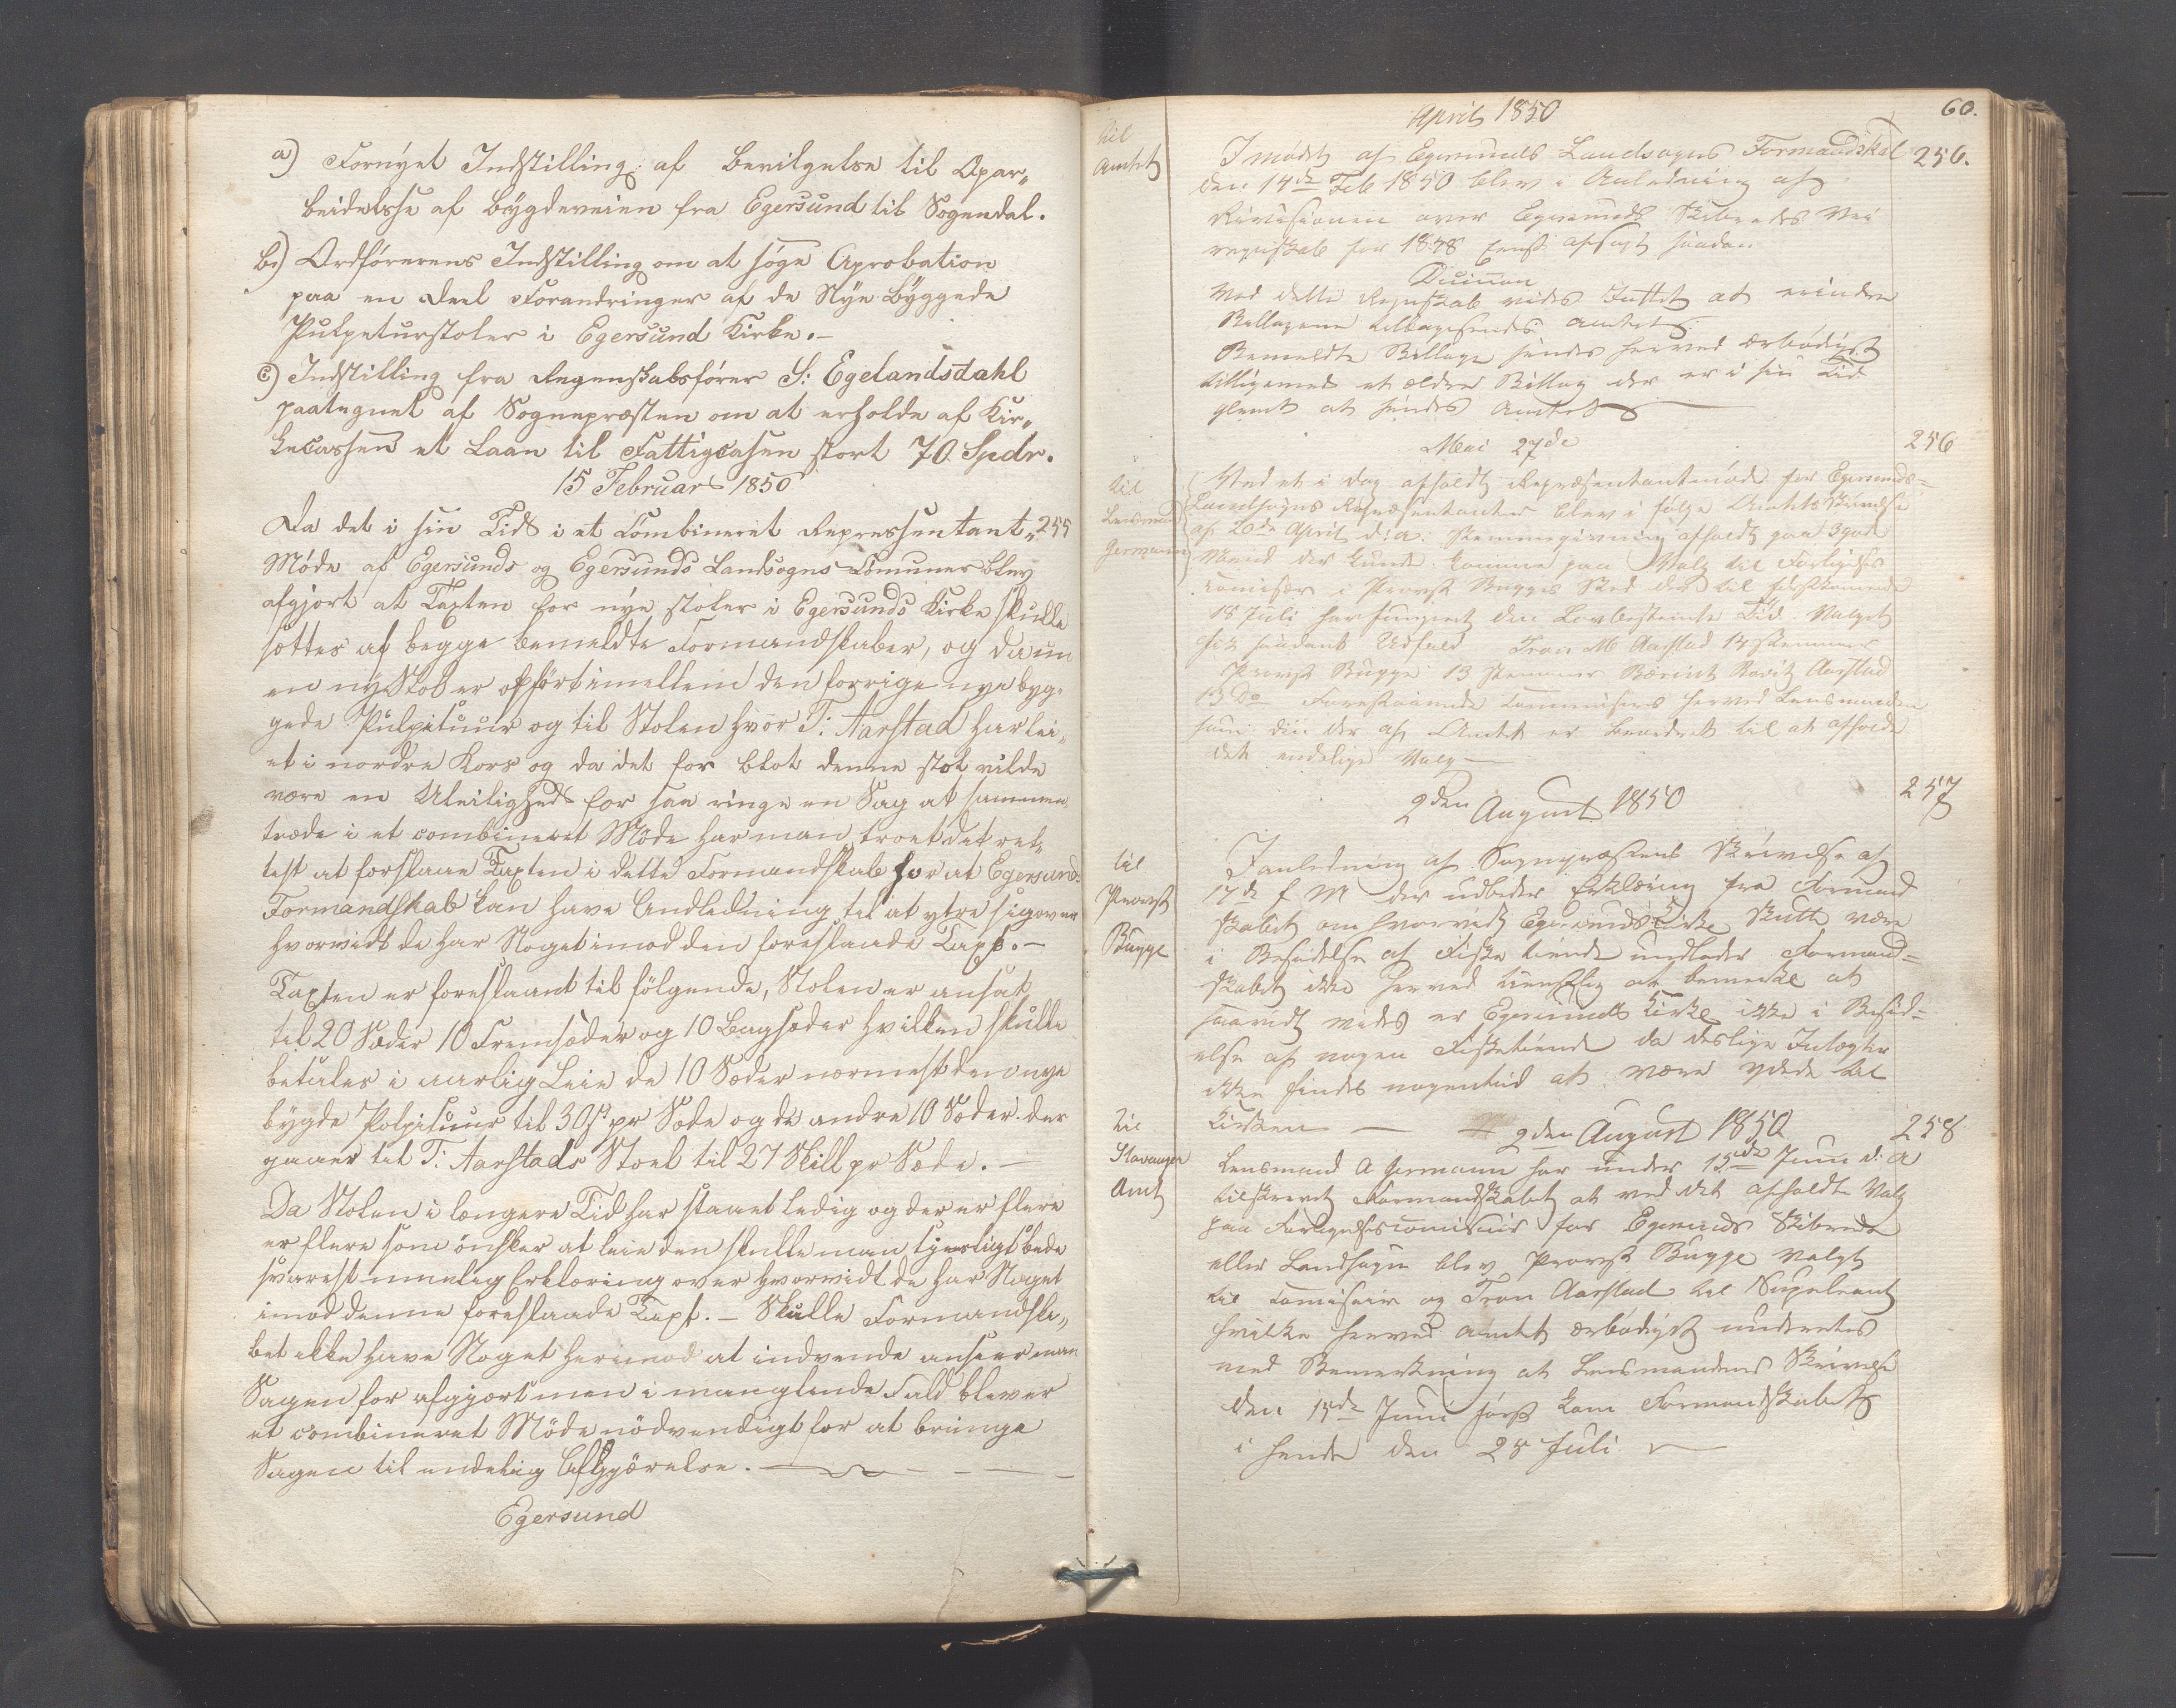 a) Fornyet Indstilling af Bevilgelse til Opar„
beidelse af Bygdeveien fra Egersund til Sogendal.
b.) Ordförerens Indstilling om at söge Aprobation
paa en Deel Forandringer af de Nye Byggede
Pulpeturstoler i Egersund Kirke.-
c) Indstilling fra Regenskabsförer S: Egelandsdahl
paategnet af Sognepræsten om at erholde af Kir„
kecassen et Laan til Fattigcasen stort 70 Spdr.
15 Februar 1850
Da det i sin Tid i et Combineret Repressentant„ 255
Möde af Egersunds og Egersunds Landsogns Comuner blev
afgjort at Taxten for nye stoler i Egersunds Kirke skulle
settes af begge bemeldte Formandskaber, og da nu
en ny Stol er opfört imellem den forrige nye byg„
gede Pulpituur og til Stolen hvor T: Aarstad har lei„
et i nordre Kors og da det for blot denne stol vilde
være en Uleilighed for saa ringe en Sag at sammen
træde i et combineret Möde har man troet det ret„
test at forslaae Taxten i dette Formandskab for at Egersunds
Formandskab kan have Andledning til at ytre sig over
hvorvidt de har Noget imod den foreslaaede Taxt.-
Taxten er foreslaaet til fölgende, Stolen er ansat
til 20 Sæder 10 Fremsæder og 10 Bagsæder hvilken skulle
betales i aarlig Leie de 10 Sæder nærmest den nye
bygde Polpituur til 30 s pr Sæde og de andre 10 Sæder der
gaaer til T: Aarstads Stoel til 27 Skill pr Sæde.-
Da Stolen i længere Tid har staaet ledig og der er flere
er flere som önsker at leie den skulle man tjenstligst bede
snarest muelig Erklæring over hvorvidt de har Noget
imod denne foreslaaede Taxt.- Skulle Formandska„
bet ikke have Noget herimod at indvende anseer man
Sagen for afgjort men i manglende Fald bliver
et combineret Möde nödvendigt for at bringe
Sagen til endelig Afgjörelse.
Egersund
60.
April 1850
til
Amtet
I mödet af Egersunds Landsogns Formandskab 256.
den 14de Feb 1850 blev i Anledning af
Revisionen over Egersunds Skibredes Vei
regnskab for 1848 afsagt saadan
Desicion
Ved dette Regnskab vides Intet at erindre
Billagene tilbagesendes Amtet
Bemeldte Billage sendes herved ærbödigst
tilligemed et ældre Billag der er i sin Tid
glemt at sendes Amtet
Mai 27de 256
til
Lensmand
Germann
Ved et i dag afholdt Repræsentantmöde for Egersunds=
Landsogns Repræsentanter blev i fölge Amtets Skrivelse
af April d: a: Stemmegivning afholdt paa 3 gode
Mænd der kunde komme paa Valg til Forligelses
comisær i Provst Bugges Sted der til förstkomende
18 Juli har fungeret den Lovbestemte Tid. Valget
fik saadant Udfald Tron M Aarstad 14 stemmer
Provst Bugge 13 stemmer Aarstad
13 Do Forestaaende herved Lensmanden
som den der af Amtet er beordret til at afholde
det endelige Valg
2den August 1850 257
til
Provst
Bugge
I anledning af Sognepræstens Skrivelse af
17de f M der udbeder Erklæring fra Formand
skabet om hvorvidt Egersunds Kirke skulle være
i Besidelse af Fiske tiende undlader Formand=
skabet ikke herved tienstlig at bemerke at
saavidt vides er Egersunds Kirke ikke i Besid=
else af nogen Fisketiende da deslige Intægter
ikke findes nogentid at være ydede til
Kirken
2den August 1850 258
til
Stavanger
Amt
Lensmand A Germann har under 15de Juni d: a
tilskrevet Formandskabet at ved det afholdte Valg
paa Forligelsescomisair for Egersunds Skibrede
eller Landsogn blev Provst Bugge valgt
til comisair og Tron Aarstad til Supleant
hvilke herved Amtet ærbödigst underrettes
med Bemerkning at Lensmandens Skrivelse
den 15de Juni först kom Formandskabet
i hende den 28 Juli